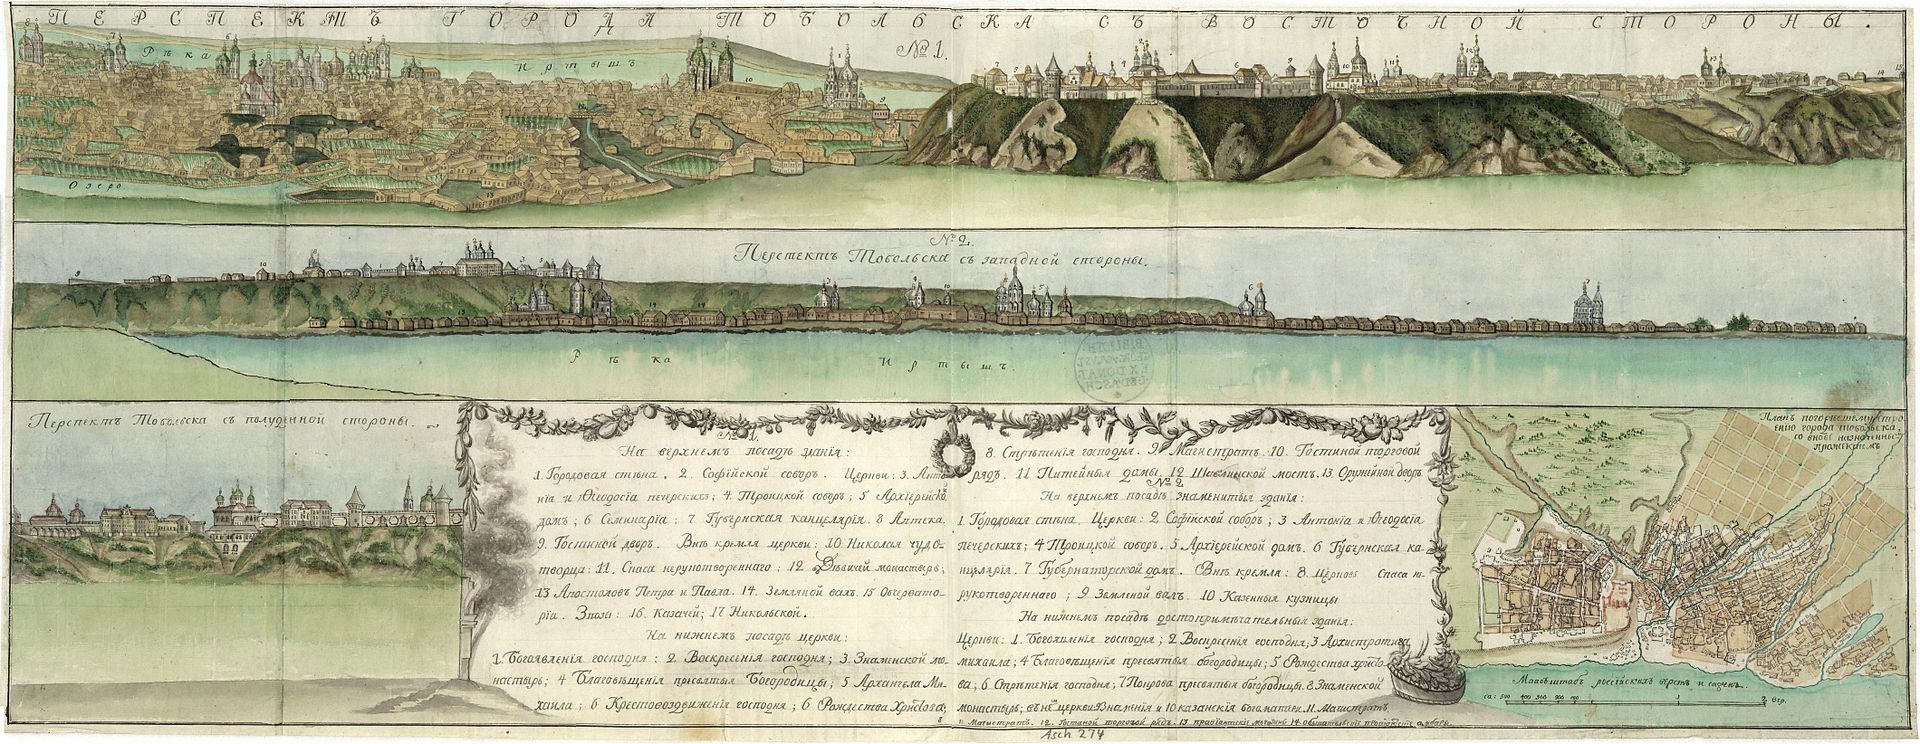 ПЕРСПЕКТЪ ГОРОДА ТОБОЛЬСКА СЪ ВОСТОЧНОЙ СТОРОНЫ.
№ 1.
Рѣка Иртышъ
Озеро
№ 2.
Перспектъ Тобольска съ западной стороны.
Рѣка Иртышъ.
Перспектъ Тобольска съ полуденной стороны.
№ 1.
На верхнемъ посадѣ зданія:
1. Городовая стѣна. 2. Софійской соборъ. Церкви: 3. Анто-
нія и Ѳеодосія печерскихъ; 4. Троицкой соборъ; 5 Архіерейской
домъ; 6 Семинарія; 7 Губернская канцелярія. 8 Аптека.
9. Гостиной дворъ. Внѣ кремля церкви: 10. Николая чудо-
творца: 11. Спаса нерукотвореннаго; 12 Дѣвичей монастырь;
13 Апостоловъ Петра и Павла. 14. Земляной валъ. 15 Обсервато-
рія. 16. Казачей; 17 Никольской.
На нижнемъ посадѣ церкви:
1. Богоявленія господня: 2 Воскресенія господня; 3 Знаменской мо-
настырь; 4 Благовѣщенія пресвятыя Богородицы; 5 Архангела Ми-
хаила; 6 Крестовоздвиженія господня; 6 Рождества Христова;
8. Срѣтенія господня. 9. Магистратъ. 10. Гостиной торговой
рядъ. 11 Питейныя домы. 12 мостъ. 13 Оружейной дворъ.
№ 2.
На верхнемъ посадѣ знаменитыя зданія:
1. Городовая стѣна. Церкви: 2 Софійской соборъ; 3 Антонія и Ѳеодосія
печерскихъ; 4 Троицкой соборъ. 5 Архіерейской домъ. 6 Губернская ка-
нцелярія. 7 Губернаторской домъ. Внѣ кремля: 8 Церковь Спаса не-
рукотвореннаго; 9 Земленой валъ. 10 Казенныя кузницы
На нижнемъ посадѣ достопримѣчательныя зданія:
Церкви: 1. Богоявленія господня; 2 Воскресенія господня, 3 Архистратига
михаила; 4 Благовѣщенія пресвятыя богородицы; 5 Рождества христо-
ва; 6 Срѣтенія господня; 7 Покрова пресвятыя богородицы. 8 Знаменской
монастырь; въ церкви Знаменія и 10 казанскія богоматери. 11. Магистратъ
11 Магистратъ. 12. Гостиной торговой рядъ. 13
Asch 274
Планъ погорѣвшему стро-
енію города тобольска,
со вновь назначеннымъ
прожектомъ
Маасштабъ россійскихъ верстъ и сажен.